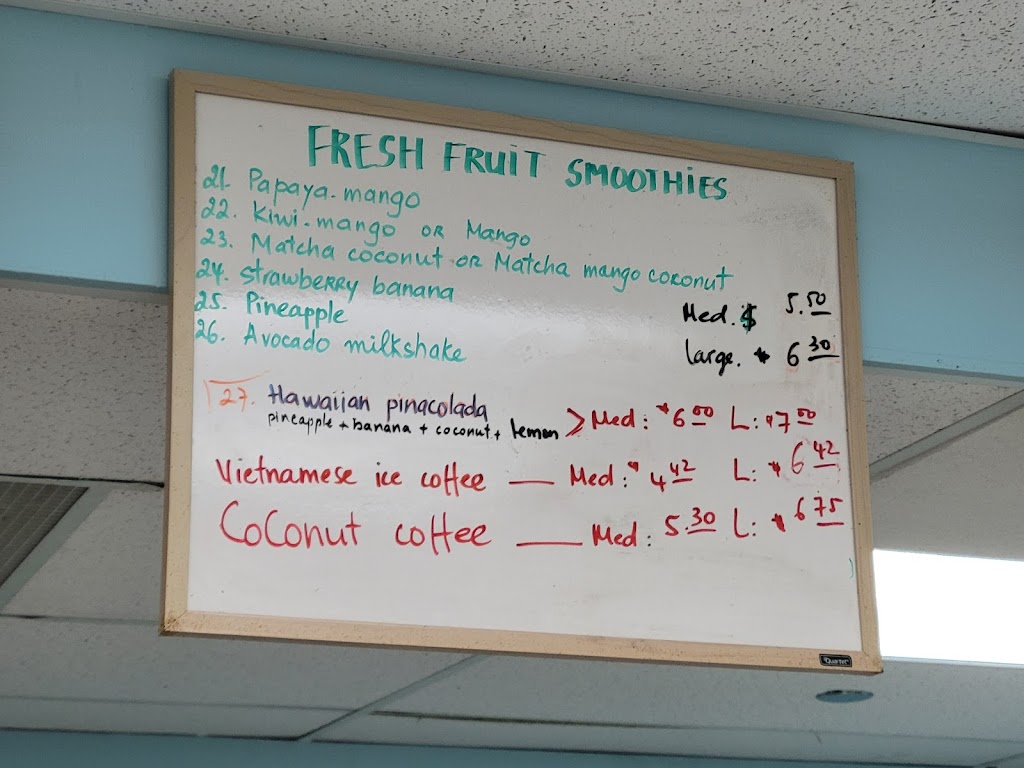 FRESH FRUIT SMOOTHIES
21. Papaya-mango
22. Kiwi-mango OR Mango
23. Matcha coconut OR Matcha mango coconut
24. strawberry banana
25. Pineapple
26. Avocado milkshake
Med. $ 5.50
large. $ 6 30
27. Hawaiian pinacolada
pineapple + banana + coconut + lemon > Med: $6 00 L: $7 50
Vietnamese ice coffee — Med: $ 4 42 L: $ 6 42
CoConut coffee — Med: 5.30 L: $ 6 75
Quartet